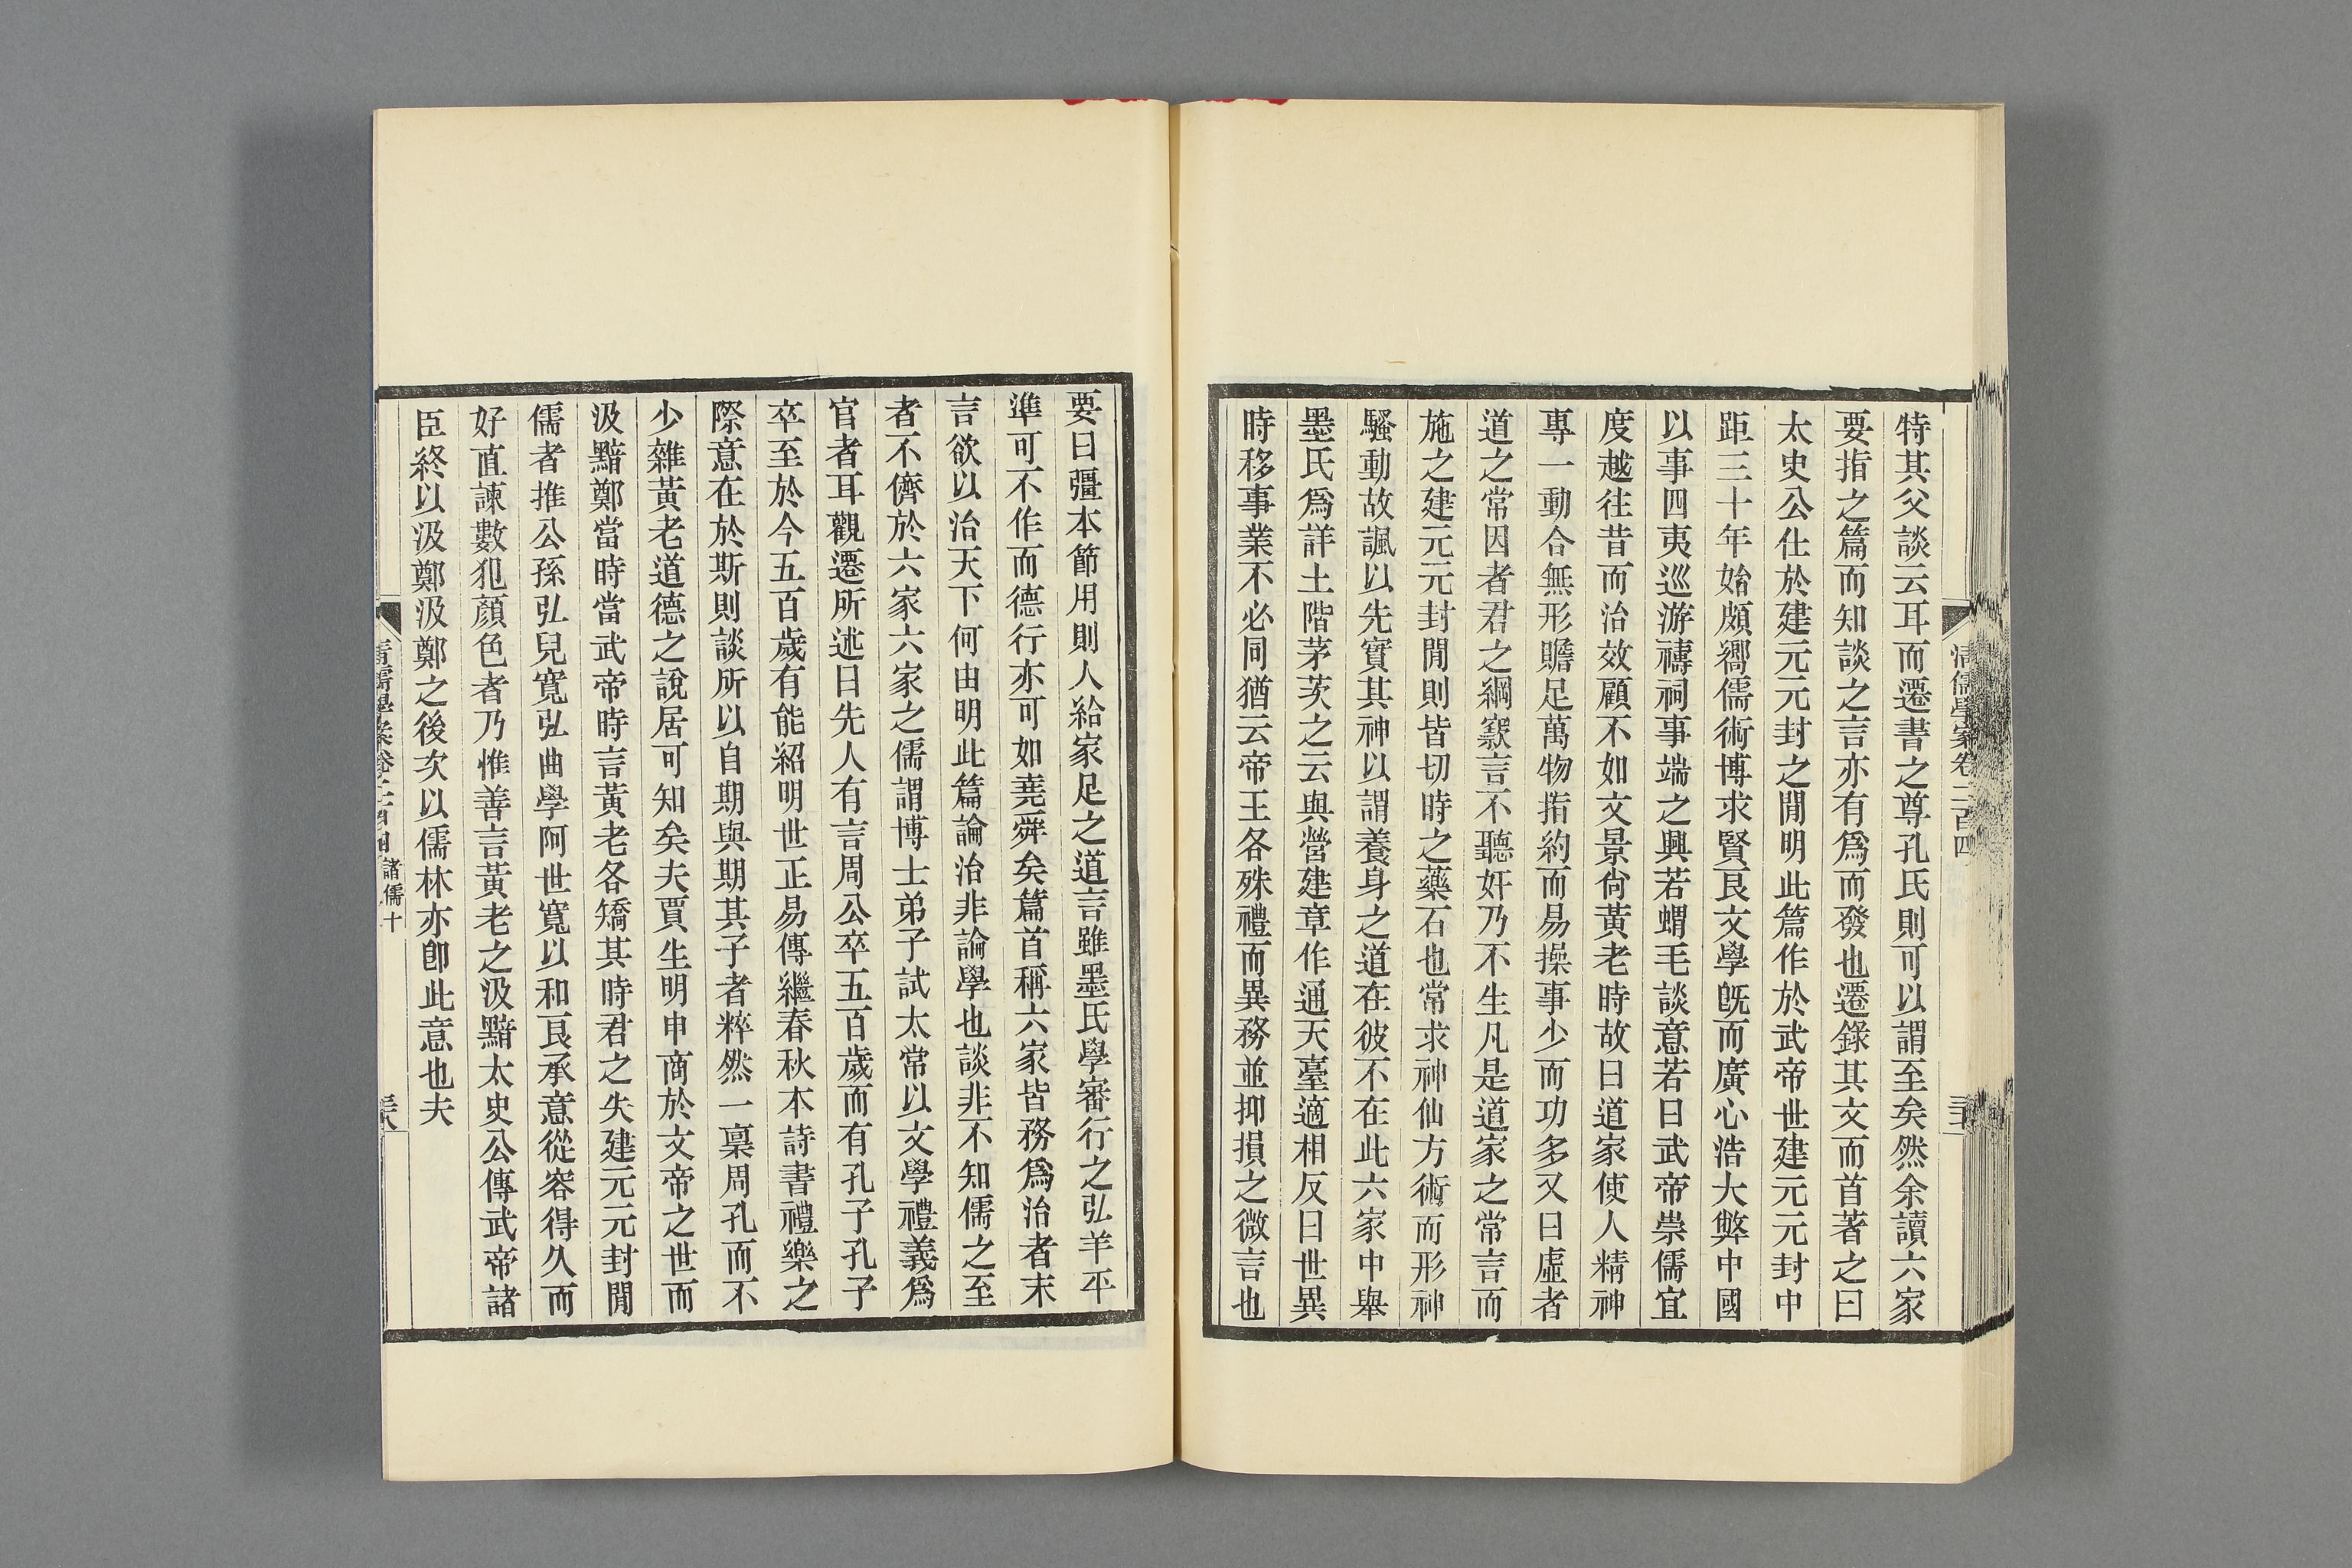 清儒學案卷二百四
特其父談云耳而遷書之尊孔氏則可以謂至矣然余讀六家
要指之篇而知談之言亦有爲而發也遷錄其文而首著之曰
太史公仕於建元元封之閒明此篇作於武帝世建元元封中
距三十年始頗嚮儒術博求賢良文學旣而廣心浩大弊中國
以事四夷巡游禱祠事端之興若蝟毛談意若曰武帝崇儒宜
度越往昔而治效顧不如文景尙黃老時故曰道家使人精神
專一動合無形贍足萬物指約而易操事少而功多又曰虛者
道之常因者君之綱窾言不聽奸乃不生凡是道家之常言而
施之建元元封閒則皆切時之藥石也常求神仙方術而形神
騷動故諷以先實其神以謂養身之道在彼不在此六家中舉
墨氏爲詳土階茅茨之云與營建章作通天臺適相反曰世異
時移事業不必同猶云帝王各殊禮而異務並抑損之微言也
要曰彊本節用則人給家足之道言雖墨氏學審行之弘羊平
準可不作而德行亦可如堯舜矣篇首稱六家皆務爲治者末
言欲以治天下何由明此篇論治非論學也談非不知儒之至
者不儕於六家六家之儒謂博士弟子試太常以文學禮義爲
官者耳觀遷所述曰先人有言周公卒五百歲而有孔子孔子
卒至於今五百歲有能紹明世正易傳繼春秋本詩書禮樂之
際意在於斯則談所以自期與期其子者粹然一稟周孔而不
少雜黃老道德之說居可知矣夫賈生明申商於文帝之世而
汲黯鄭當時當武帝時言黃老各矯其時君之失建元元封閒
儒者推公孫弘兒寬弘曲學阿世寬以和良承意從容得久而
好直諫數犯顏色者乃惟善言黃老之汲黯太史公傳武帝諸
臣終以汲鄭汲鄭之後次以儒林亦卽此意也夫
清儒學案卷二百四 諸儒十